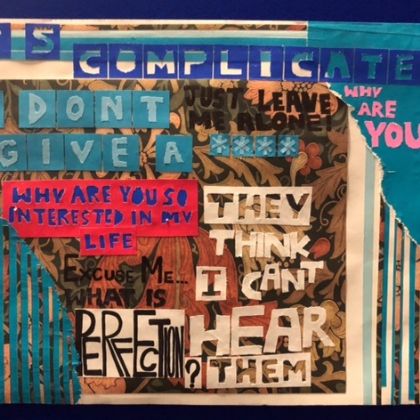 'S COMPLICATE
DONT
GIVE A ****
JUST LEAVE
ME ALONE!
WHY
ARE
YOU
WHY ARE YOU SO
INTERESTED IN MY
LIFE
THEY
THINK
I CANT
HEAR
THEM
EXCUSE ME...
WHAT IS
PERFECTION?